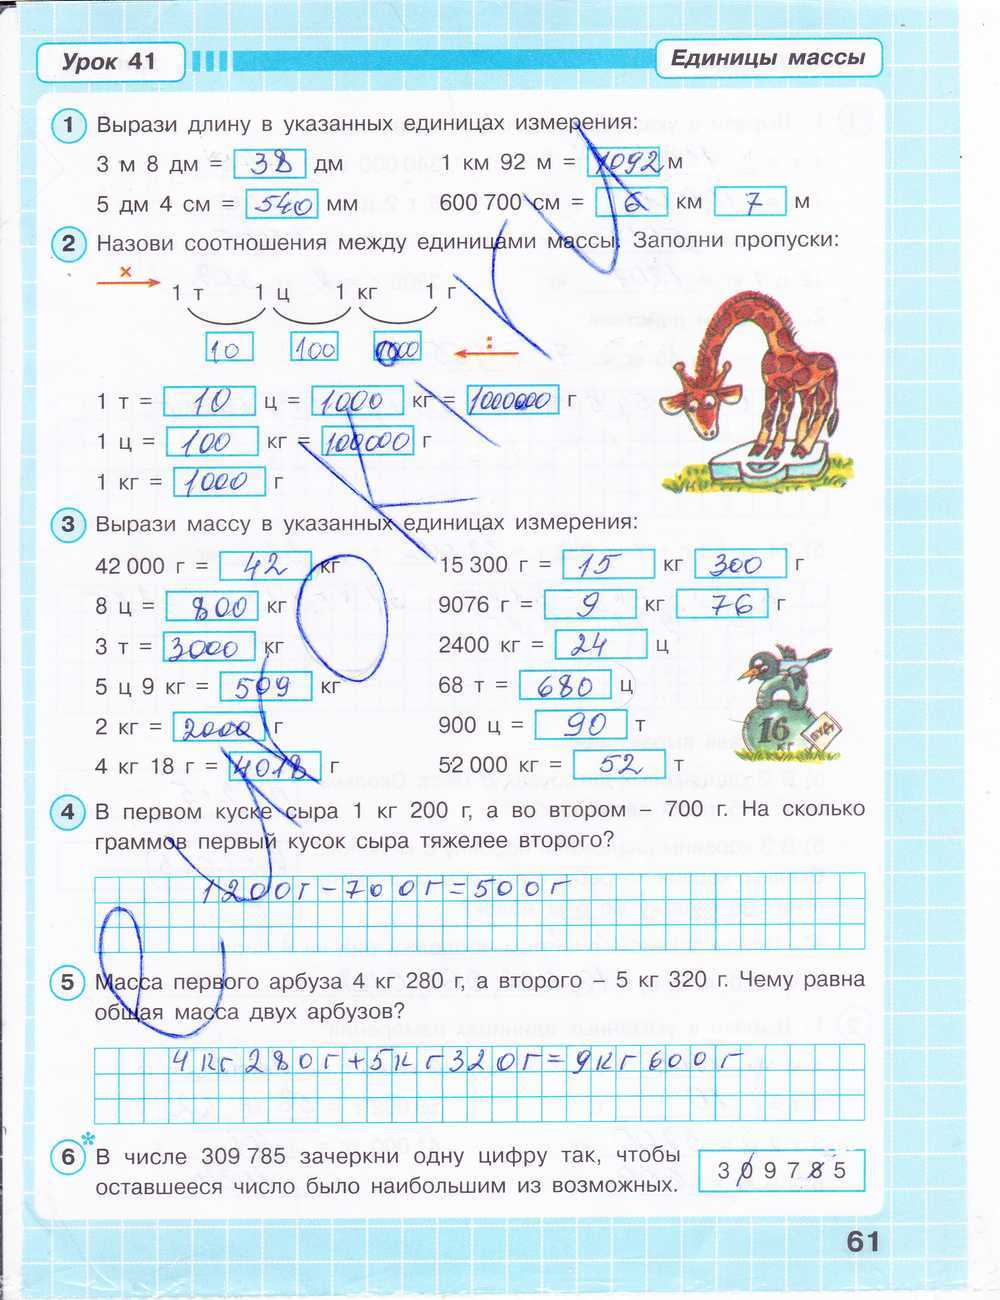 Урок 41
Единицы массы
1 Вырази длину в указанных единицах измерения:
3 м 8 дм = 38 дм 1 км 92 м = 1092 м
5 дм 4 см = 540 мм 600 700 см = 6 км 7 м
2 Назови соотношения между единицами массы. Заполни пропуски:
×
1 т 1 ц 1 кг 1 г
:
10 100 1000
1 т = 10 ц = 1000 кг = 1000000 г
1 ц = 100 кг = 100000 г
1 кг = 1000 г
3 Вырази массу в указанных единицах измерения:
42 000 г = 42 кг 15 300 г = 15 кг 300 г
8 ц = 800 кг 9076 г = 9 кг 76 г
3 т = 3000 кг 2400 кг = 24 ц
5 ц 9 кг = 509 кг 68 т = 680 ц
2 кг = 2000 г 900 ц = 90 т
4 кг 18 г = 4018 г 52 000 кг = 52 т
16 кг
4 В первом куске сыра 1 кг 200 г, а во втором – 700 г. На сколько
граммов первый кусок сыра тяжелее второго?
1200г-700г=500г
5 Масса первого арбуза 4 кг 280 г, а второго – 5 кг 320 г. Чему равна
общая масса двух арбузов?
4кг280г+5кг320г=9кг600г
6* В числе 309 785 зачеркни одну цифру так, чтобы
оставшееся число было наибольшим из возможных.
309785
61